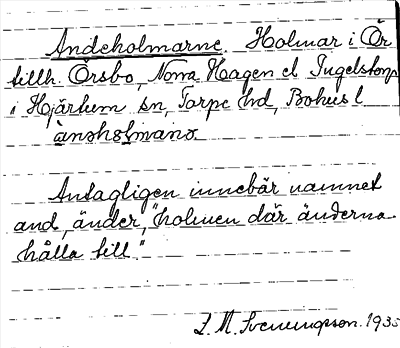 Andeholmarne. Holmar i Ör
tillh. Örsbo, Norra Hagen el Ingelstorp
i Hjärtum sn, Torpe hd, Bohusl
ànəhɔ̀lmanə
Antagligen innebär namnet
and, änder, "holmen där änderna
hålla till."
L. M. Svenungsson. 1935